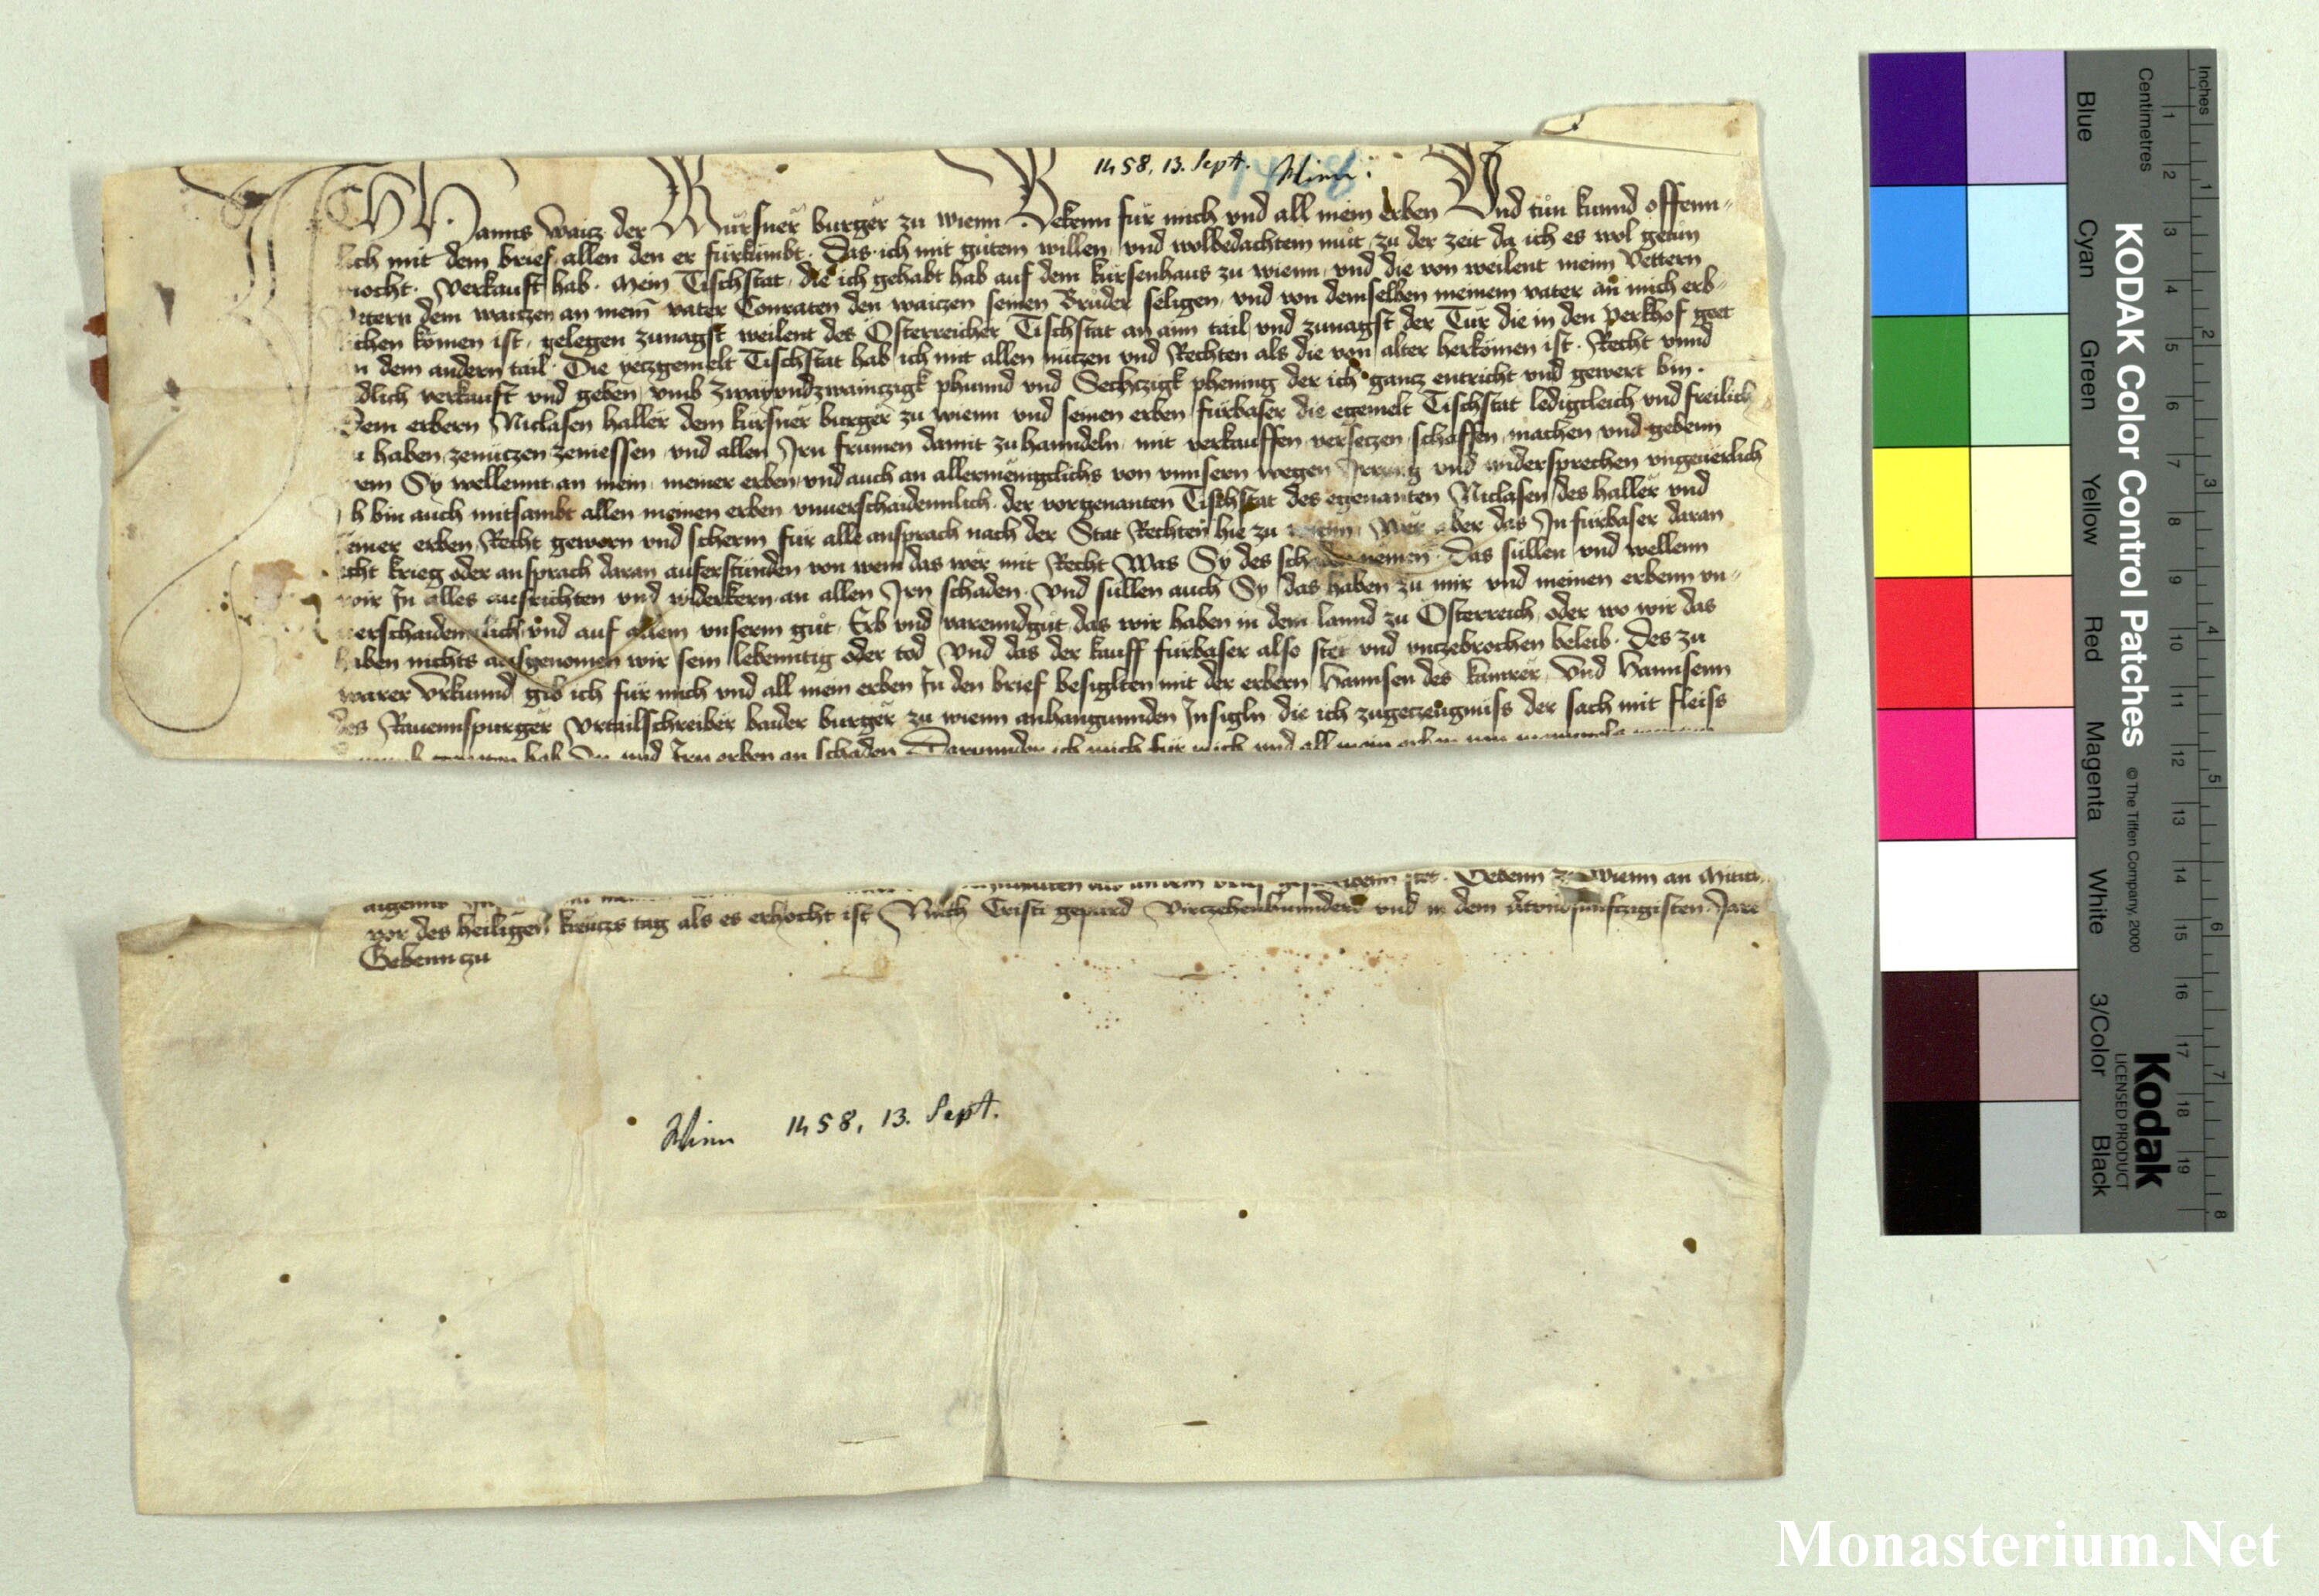 1458, 13. Sept. Wien:
ICH Hanns Waicz der Kürsner burger zu wienn Bekenn für mich vnd all mein erben Vnd tůn kunnd offenn-
lich mit dem brief allen den er fürkümbt. Das ich mit gůtem willen vnd wolbedachtem můt zu der zeit da ich es wol getůn
mocht. Verkauft hab. Mein Tischstat, die ich gehabt hab auf dem kürsenhaus zu wienn, vnd die von weilent meim Vettern
Petern dem waiczen an mein vater Conraten den waiczen seinen Brůder seligen, vnd von demselben meinem vater an mich erb-
lichen kömen ist, gelegen zunagst weilent des Österreicher Tischstat an aim tail, vnd zunagst der Tür die in den Perkhof geet
an dem andern tail. Die yeczgemelt Tischstat hab ich mit allen nuczen vnd Rechten als die von alter herkömen ist. Recht vnnd
redlich verkauft vnd geben, vmb Zwayvndzwainczigk phunnd vnd Sechczigk phening der ich ganz entricht vnd gewert bin.
Dem erbern Niclasen Haller dem kürsner burger zu wienn vnd seinen erben fürbaser die egemelt Tischstat ledigcleich vnd freilich
zu haben, zenuczen zeniessen, vnd allen Irn frumen damit zu hanndeln, mit verkauffen versetzen, schaffen, machen vnd gebenn
wem Sy wellennt an mein, meiner erben, vnd auch an allermenigclichs von vnnsern wegen Irrung vnd widersprechen vngeuerlich
Ich bin auch mitsambt allen meinen erben vnuerschaidennlich. der vorgenanten Tischstat des egenanten Niclasen des Haller vnd
seiner erben, Recht gewern vnd scherm für alle ansprach nach der Stat Rechten hie zu wienn, Wer aber das In fürbaser daran
icht krieg oder ansprach daran auferstünden von wem das wer mit Recht Was Sy des schaden nemen. Das süllen vnd wellenn
wir In alles ausrichten vnd widerkern an allen Irn schaden. Vnd süllen auch Sy das haben zu mir vnd meinen erbenn vn-
uerschaidennlich, vnd auf allem vnserm gůt, Erb vnd varenndgůt, das wir haben in dem lannd zu Österreich, oder wo wir das
haben nichts ausgenomen wir sein lebenntig oder tod Vnd das der kauff fürbaser also stet vnd vnczebrochen beleib. Des zu
warer Vrkunnd gib ich für mich vnd all mein erben In den brief besigleten mit der erbern Hannsen des kamrer, Vnd Hannsenn
des Rauennspurger Vrtailschreiber baider burger zu wienn anhangunnden Insigln die ich zugeczeugnüss der sach mit fleiss
hab In vnd Irn erben an schaden Darunnder ich mich für mich vnd all mein erben
stet. Gebenn zu Wienn an Mitti-
vor des heiligen kreuczs tag als es erhöcht ist Nach Cristi gepurd Virczehenhunndert vnd in dem Achtvndfünfczigisten Jare
Gebenn zu
Wien 1458, 13. Sept.
Inches
Centimetres
KODAK Color Control Patches
© The Tiffen Company, 2000
Kodak
LICENSED PRODUCT
Blue Cyan Green Yellow Red Magenta White 3/Color Black
1 2 3 4 5 6 7 8 9 10 11 12 13 14 15 16 17 18 19
1 2 3 4 5 6 7 8
Monasterium.Net